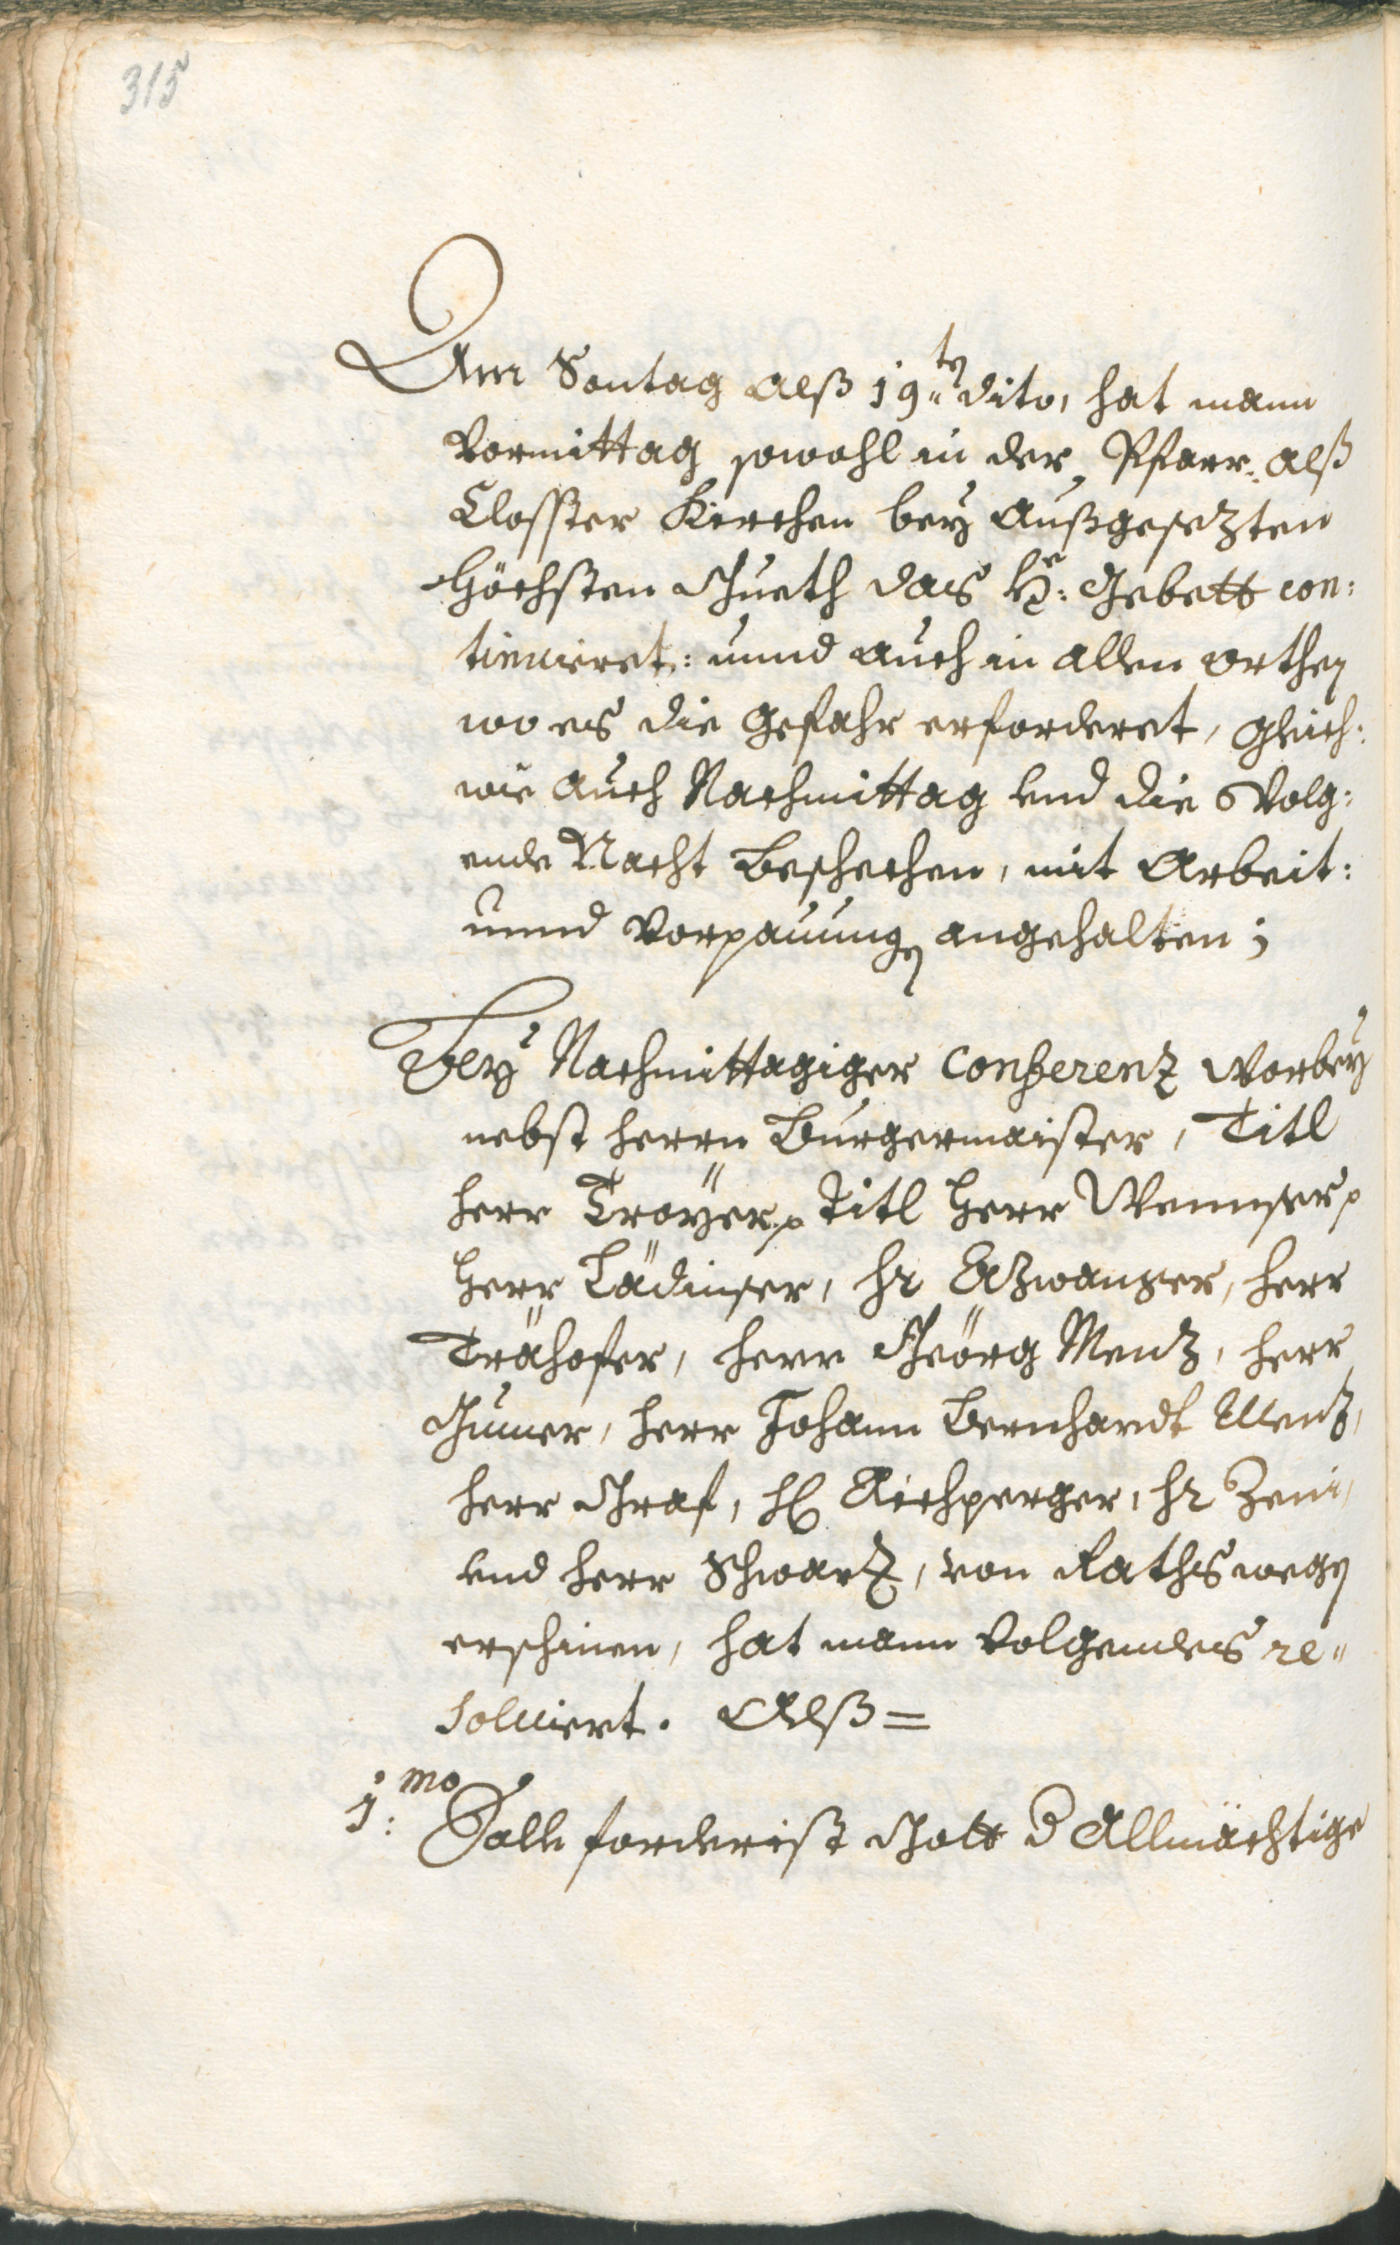 315
Am Sontag alß 19.ten dito, hat mann
Vormittag sowohl in der Pfarr- alß
Closster Kirchen bey außgesezten
Höchsten Gueth das h: Gebett con:
tinuieret: unnd auch in allen orthen
wo es die Gefahr erforderet, gleich:
wie auch Nachmittag und die Volg:
ende Nacht beschechen, mit Arbeit:
unnd Vorpauung angehalten;
Bey Nachmittagiger Conferenz worbey
nebst herrn Burgermaister, Titl
herr Troÿer, Titl Herr Wennser,
Herr Lädinser, hr Azwanger, herr
Trähofer, herr Geörg Menz, herr
Gumer, herr Johann Bernhardt Menz,
herr Graf, hr Aichperger, hr Zeni,
und herr Schwarz, von Raths wegen
erschinen, hat mann Volgendes re"
soluiert. Alß=
1:mo Solle forderist Gott d Allmächtige